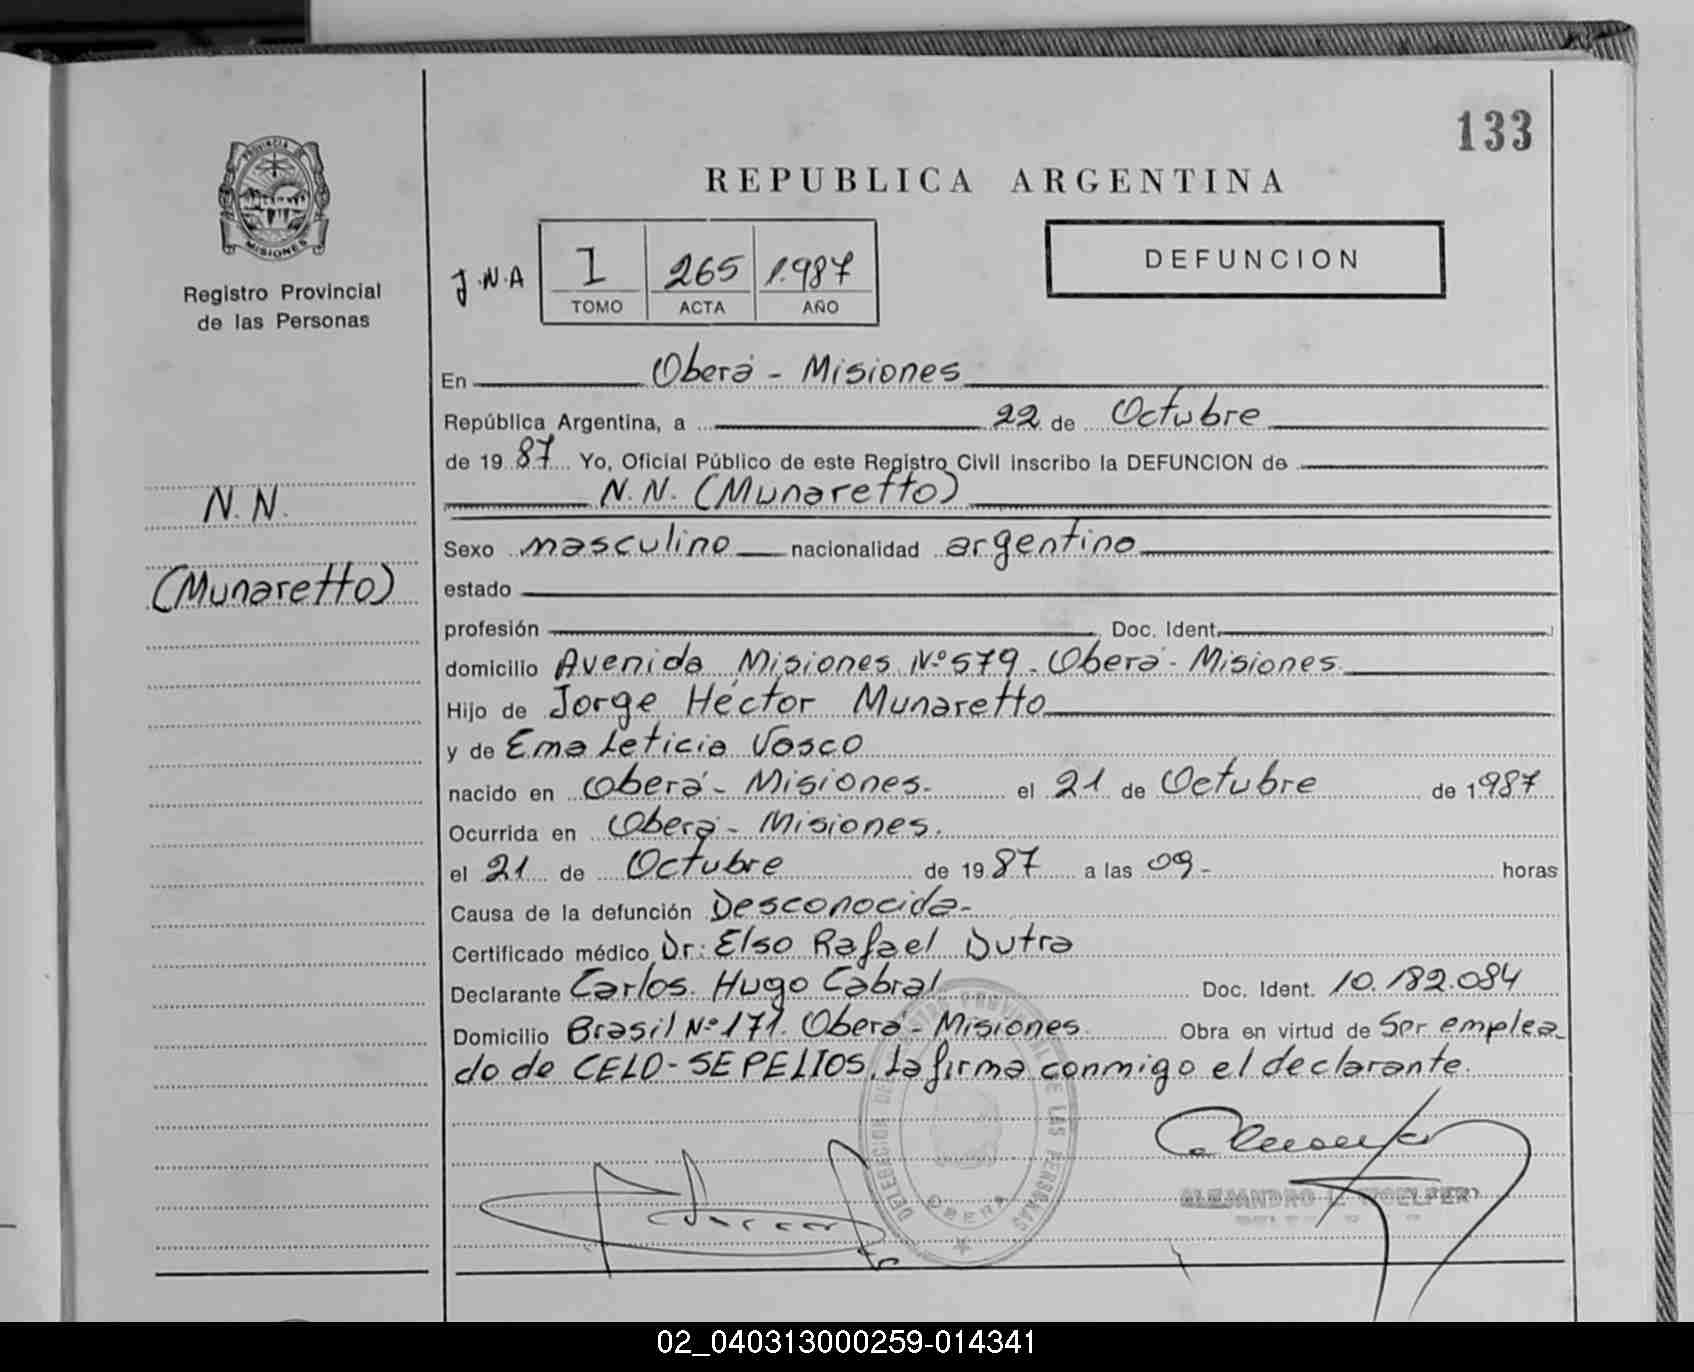 133
PROVINCIA DE
MISIONES
Registro Provincial
de las Personas
REPUBLICA ARGENTINA
J.N.A
I 265 1.987
TOMO ACTA AÑO
DEFUNCION
En Oberá - Misiones
República Argentina, a 22 de Octubre
de 19 87 Yo, Oficial Público de este Registro Civil inscribo la DEFUNCION de
N.N. (Munaretto)
N.N.
(Munaretto)
Sexo masculino nacionalidad argentino
estado
profesión Doc. Ident.
domicilio Avenida Misiones Nº 579 - Oberá - Misiones
Hijo de Jorge Héctor Munaretto
y de Ema Leticia Vasco
nacido en Oberá - Misiones. el 21 de Octubre de 1987
Ocurrida en Oberá - Misiones.
el 21 de Octubre de 19 87 a las 09 - horas
Causa de la defunción Desconocida -
Certificado médico Dr: Elso Rafael Dutra
Declarante Carlos Hugo Cabral Doc. Ident. 10.182.084
Domicilio Brasil Nº 171. Oberá - Misiones Obra en virtud de Ser emplea
do de CELO - SEPELIOS. La firma conmigo el declarante.
DELEGACION DEL REGISTRO PROVINCIAL DE LAS PERSONAS
OBERA
ALEJANDRO
02_040313000259-014341